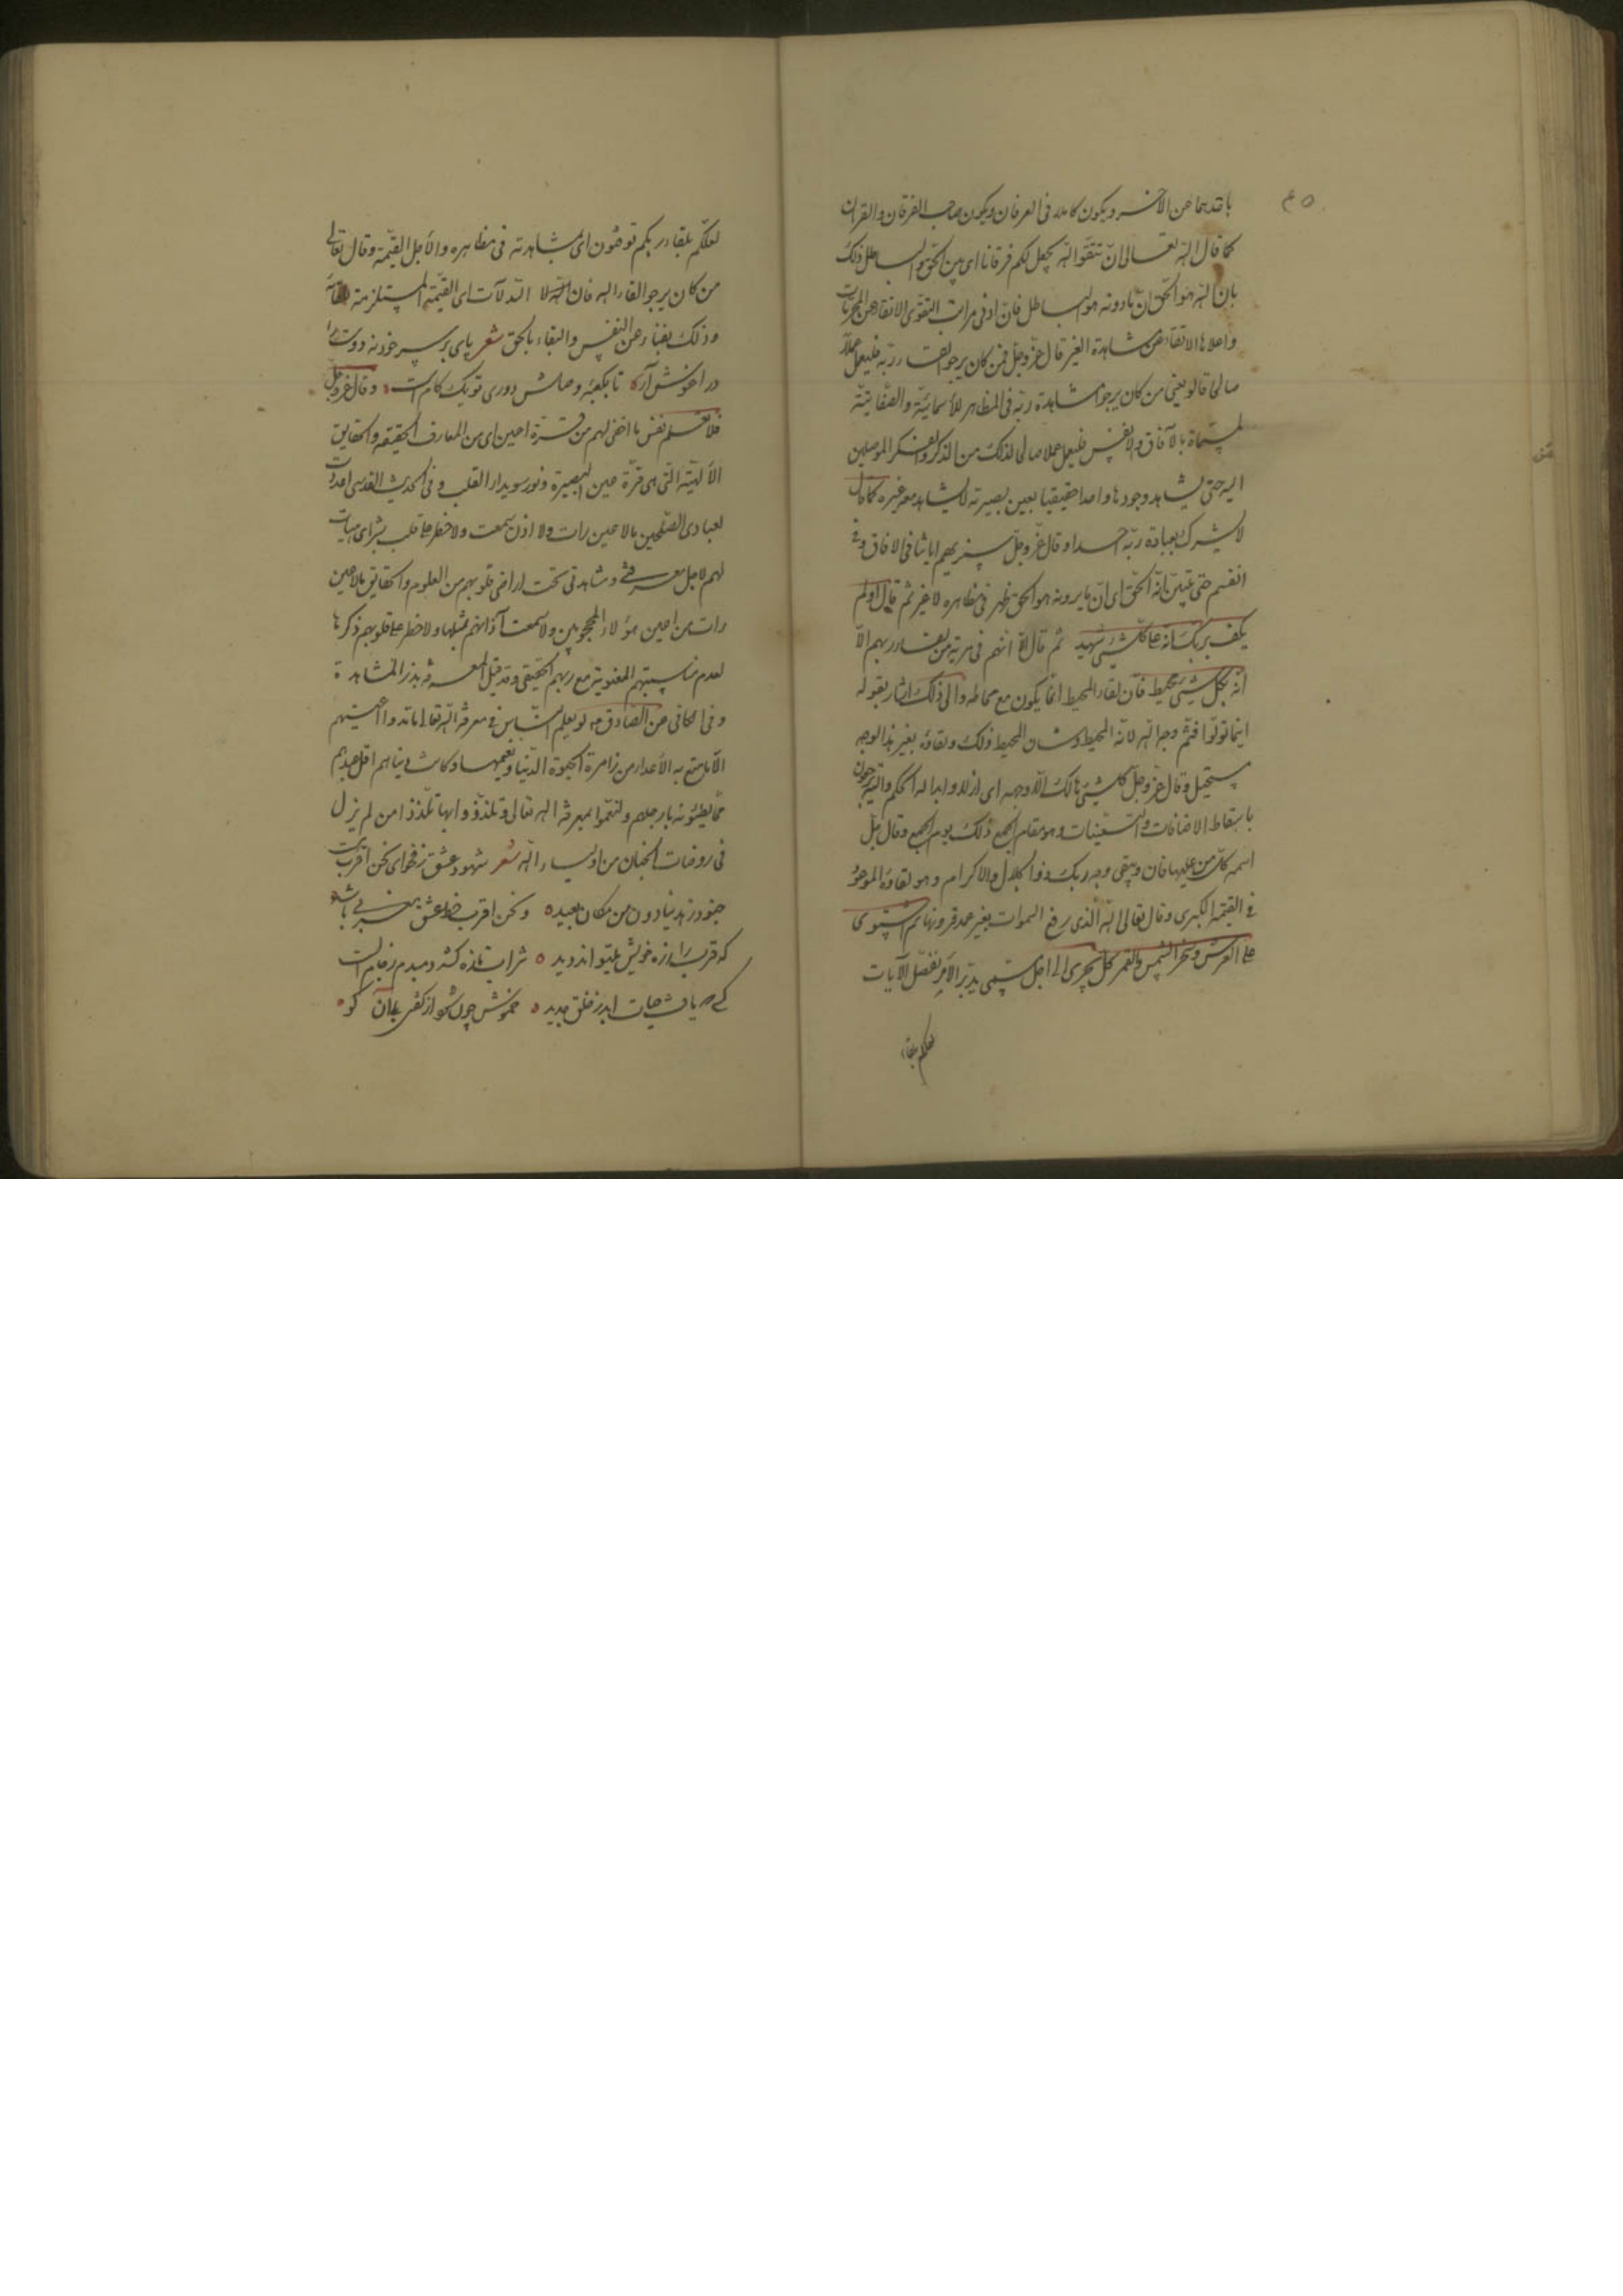 باحدهما عن الآخر ويكون كاملا فى العرفان ويكون صاحب الفرقان والقران
كما قال الله تعالى ان تتقوا الله يجعل لكم فرقانا اى بين الحق والباطل ذلك
بان الله هو الحق وان ما دونه هو الباطل فان ادنى مراتب التقوى الاتقاء عن المحرمات
واعلاها الاتقاء عن مشاهدة الغير قال عز وجل فمن كان يرجو لقاء ربه فليعمل عملا
صالحا قالوا يعنى من كان يرجو مشاهدة ربه فى المظاهر الأسمائية والصفاتية
المسماة بالآفاق والانفس فليعمل عملا صالحا لذلك من الذكر والفكر الموصلين
اليه حتى يشاهد وجودها واحدا حقيقيا بعين بصيرته لا يشاهد معه غيره كما قال
لا يشرك بعبادة ربه احدا وقال عز وجل سنريهم اياتنا فى الافاق وفى
انفسهم حتى يتبين انه الحق اى ان ما يرونه هو الحق ظهر فى مظاهره لا غير ثم قال اولم
يكف بربك انه على كل شىء شهيد ثم قال الا انهم فى مرية من لقاء ربهم الا
انه بكل شىء محيط فان لقاء المحيط انما يكون مع محاطه والى ذلك اشار بقوله
اينما تولوا فثم وجه الله لانه المحيط وشان المحيط ذلك ولقاؤه بغير هذا الوجه
مستحيل وقال عز وجل كل شىء هالك الا وجهه اى ازلا وابدا له الحكم واليه ترجعون
باسقاط الاضافات والتعينات وهو مقام الجمع ذلك يوم الجمع وقال جل
اسمه كل من عليها فان ويبقى وجه ربك ذو الجلال والاكرام وهو لقاؤه الموعود
فى القيمة الكبرى وقال تعالى الله الذى رفع السموات بغير عمد ترونها ثم استوى
على العرش وسخر الشمس والقمر كل يجرى الى اجل مسمى يدبر الأمر يفصل الآيات
لعلكم بلقاء
لعلكم بلقاء ربكم توقنون اى بمشاهدته فى مظاهره والأجل القيمة وقال تعالى
من كان يرجو لقاء الله فان اجل الله لآت اى القيمة المستلزمة لقائه
وذلك بفناء عن النفس والبقاء بالحق شعر پاى بر سر خود نه دوست را
در اغوش آر تا بكعبه وصالش دورى تو يك كام است وقال عز وجل
فلا تعلم نفس ما اخفى لهم من قرة اعين اى من المعارف الحقيقة والحقايق
الالهية التى هى قرة عين البصيرة ونور سويداء القلب وفى الحديث القدسى اعددت
لعبادى الصلحين ما لا عين رات ولا اذن سمعت ولا خطر على قلب بشر اى هيات
لهم لاجل معرفتى ومشاهدتى تحت اراضى قلوبهم من العلوم والحقايق ما لا عين
رات من اعين هؤلاء المحجوبين ولا سمعت آذانهم بمثلها ولا خطر على قلوبهم ذكرها
لعدم مناسبتهم المعنوية مع ربهم الحقيقى وقد قيل المعرفة بذر المشاهدة
وفى الكافى عن الصادق ع لو يعلم الناس ما فى معرفة الله تعالى ما مدوا اعينهم
الى ما متع به الأعداء من زهرة الحيوة الدنيا ونعيمها وكانت دنياهم اقل عندهم
مما يطئونه بارجلهم ولنعموا بمعرفة الله تعالى وتلذذوا بها تلذذ من لم يزل
فى روضات الجنان من اولياء الله شعر شهود عشق ز فحواى نحن اقرب
جنود زهد ينادون من مكان بعيد ونحن اقرب خط عشق
كه قرب را ز خويش اندديد شراب تازه كشد دمبدم ز جام الست
كه حيات ابد ز خلق جديد خموش چون